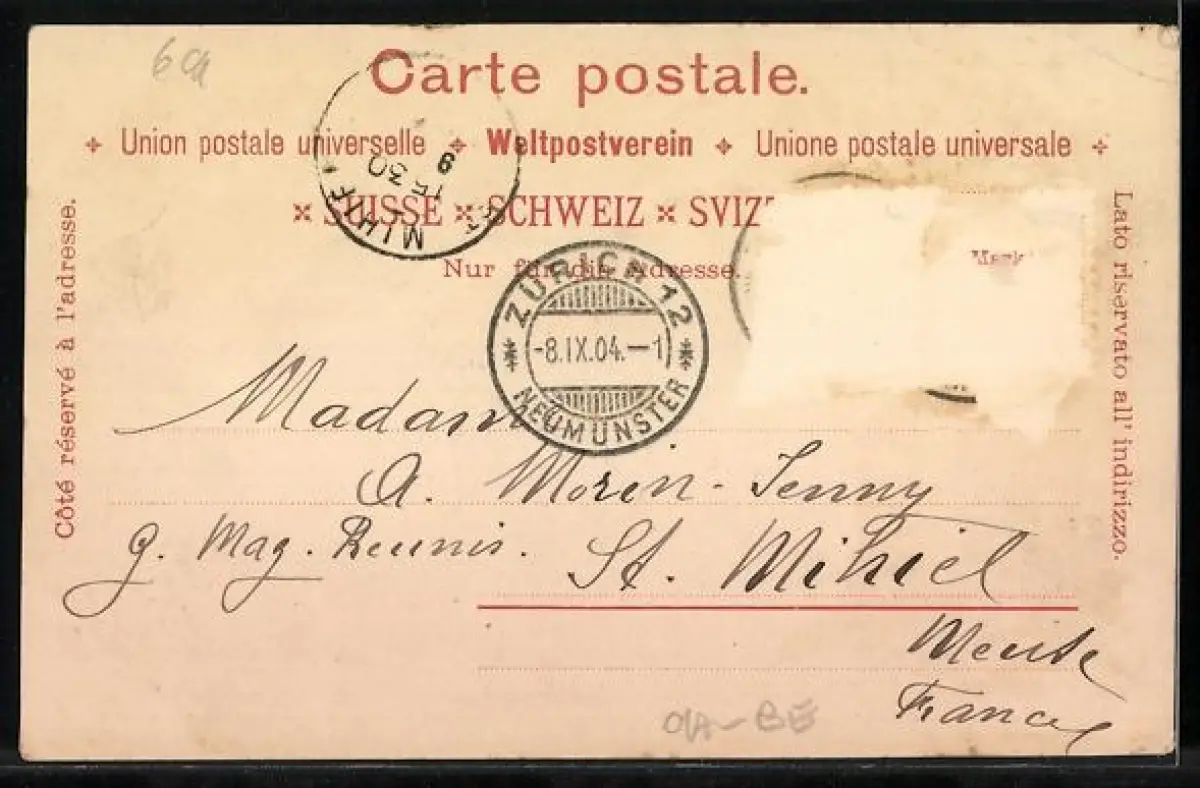 Carte postale.
Union postale universelle Weltpostverein Unione postale universale
SUISSE SCHWEIZ SVIZ
Nur für die Adresse.
Côté réservé à l'adresse.
Lato riservato all' indirizzo.
MIHIE
15 30
9
ZÜRICH 12
-8.IX.04.-1
NEUMÜNSTER
Madame
A. Morin-Jenny
g. Mag. Reunis. St. Mihiel
Meuse
France